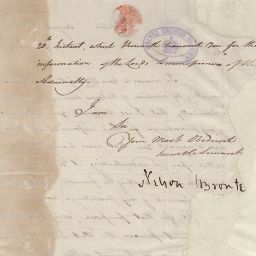 20th Instant, which I herewith transmit You for the
information of the Lords Commissioners of the
Admiralty.
I am
Sir
Your Most Obedient
humble Servant
Nelson Bronte